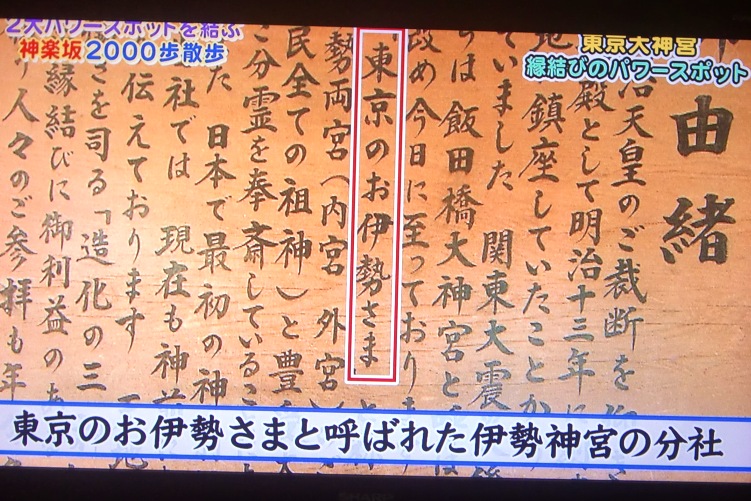 2大パワースポットを結ぶ
神楽坂2000歩散歩
東京大神宮
縁結びのパワースポット
由緒
治天皇のご裁断を
殿として明治十三年に
鎮座していたことか
ていました 関東大震
は 飯田橋大神宮と
改め今日に至っており
東京のお伊勢さま
勢両宮(内宮 外宮)
民全ての祖神)と豊
分霊を奉斎しているこ
た 日本で最初の神
社では 現在も神
伝えております
さを司る「造化の三
縁結びに御利益のあ
り人々のご参拝も年
東京のお伊勢さまと呼ばれた伊勢神宮の分社